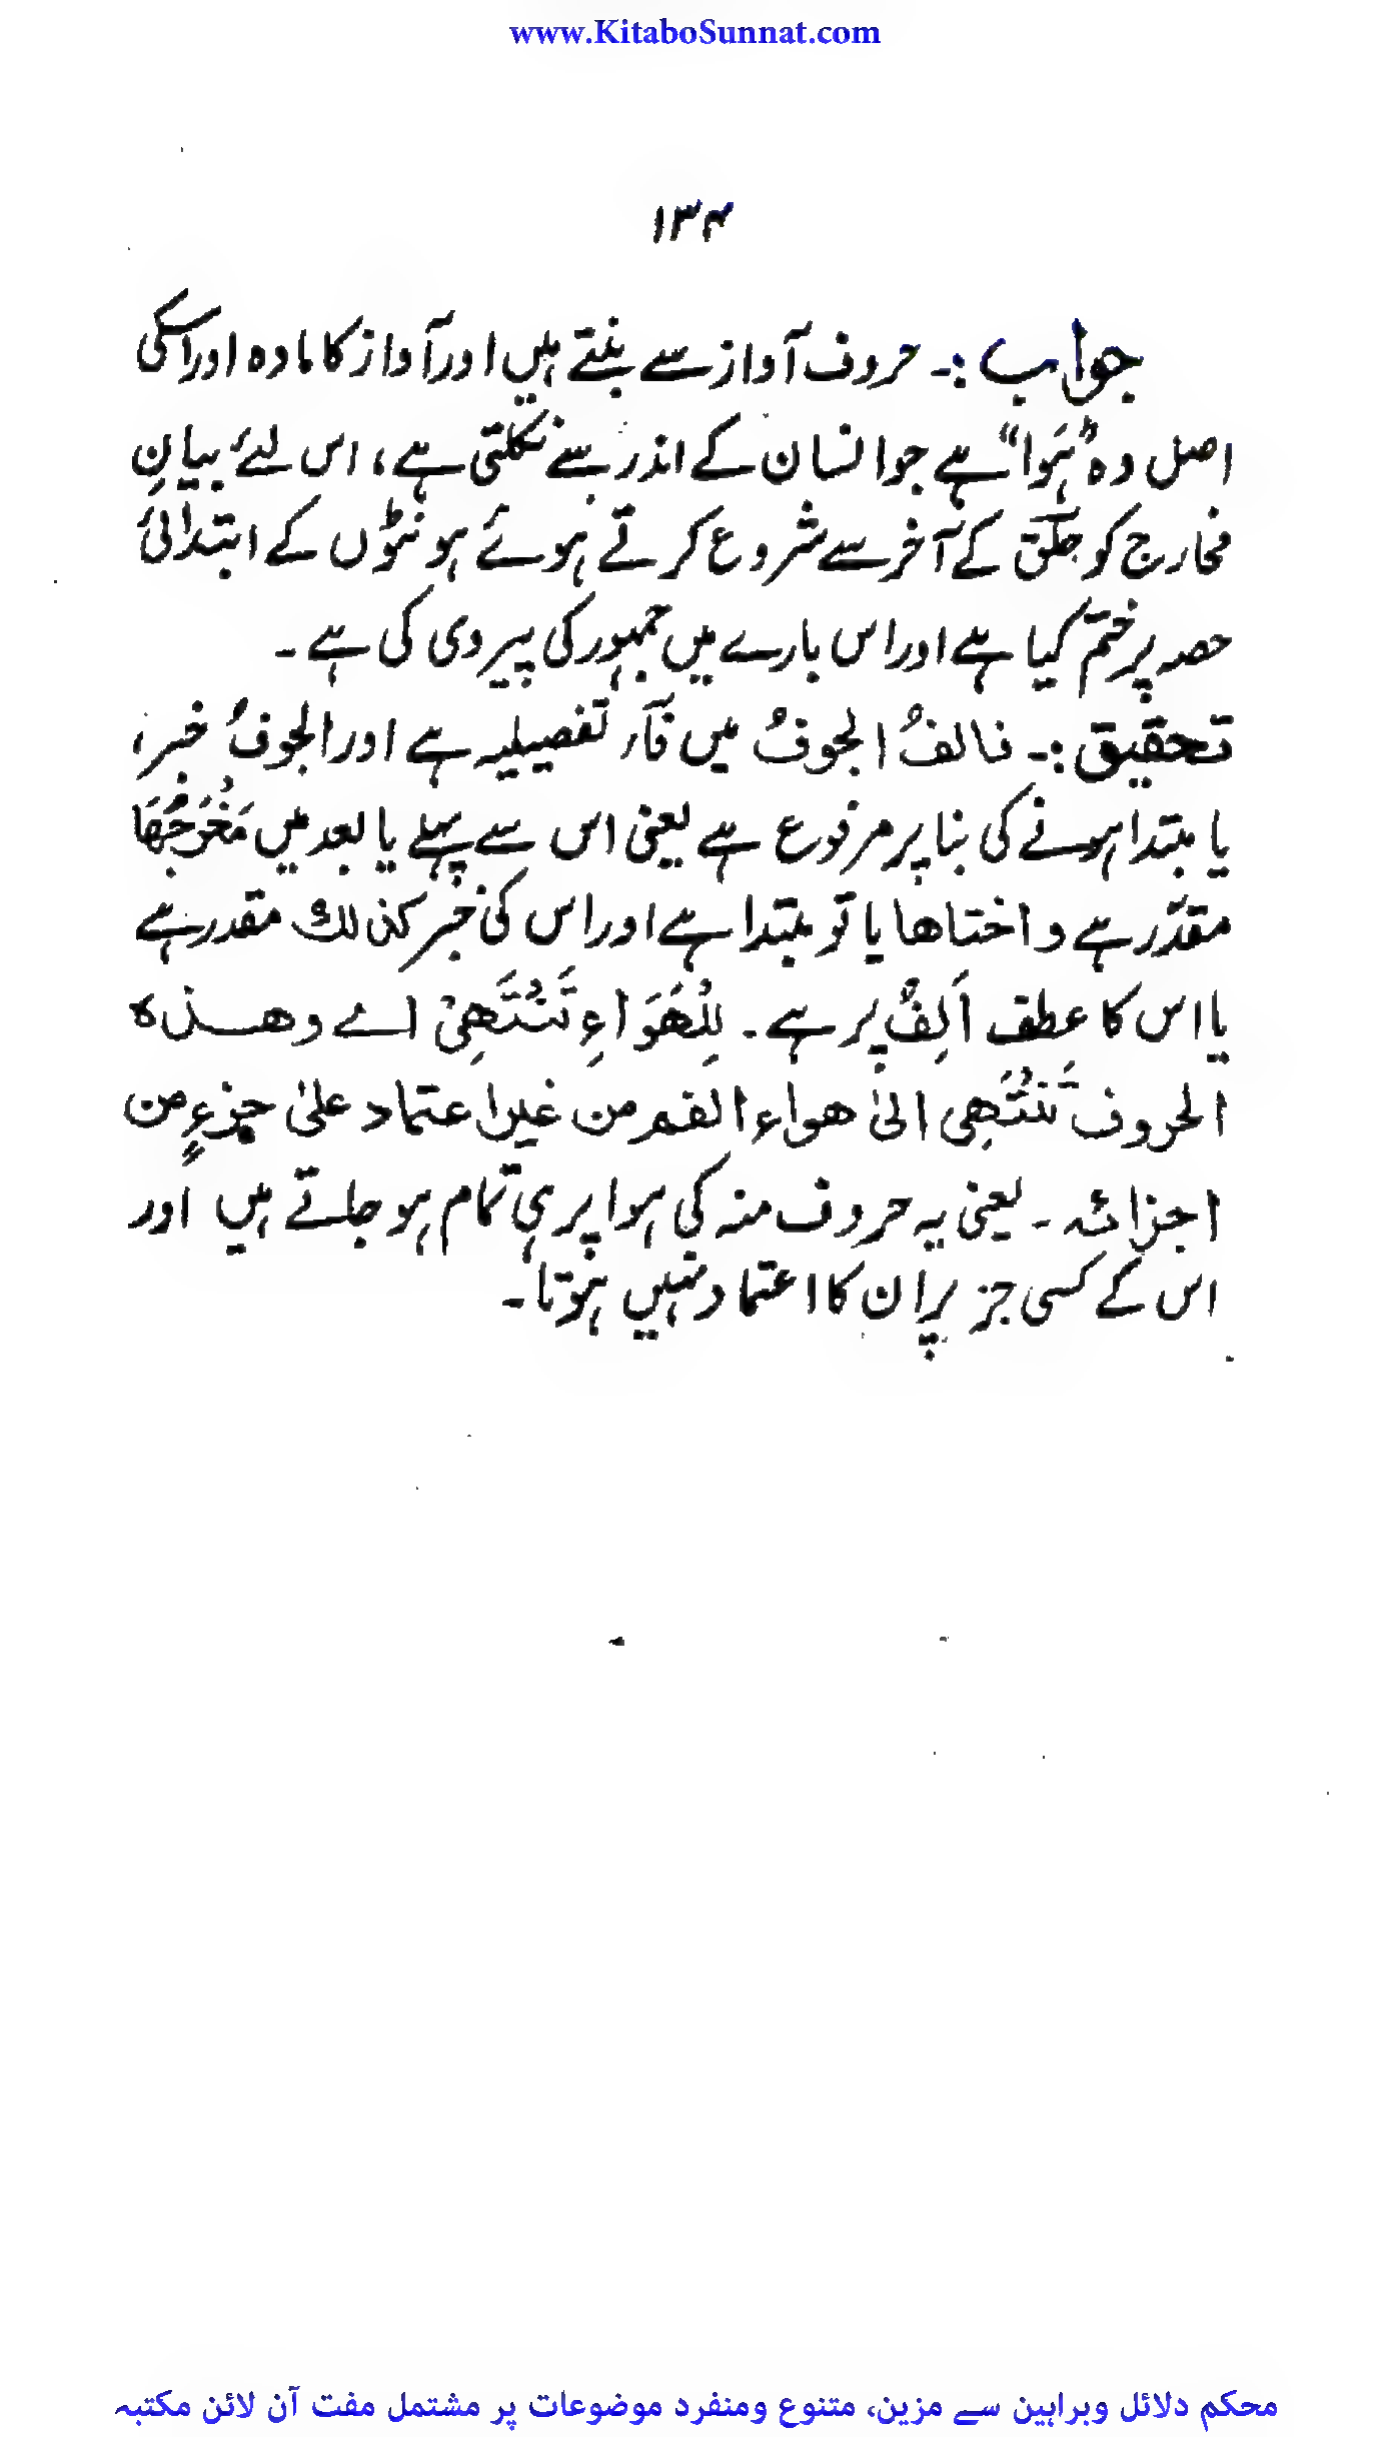 www.KitaboSunnat.com
۱۳۴
جواب :۔ حروف آواز سے بنتے ہیں اور آواز کا مادہ اور اسکی
اصل وہ ”ہَوا“ ہے جو انسان کے اندر سے نکلتی ہے، اس لئے بیانِ
مخارج کو حلق کے آخر سے شروع کرتے ہوئے ہونٹوں کے ابتدائی
حصہ پر ختم کیا ہے اور اس بارے میں جمہور کی پیروی کی ہے ۔
تحقیق :۔ فالفُ الجوفُ میں فآء تفصیلیہ ہے اور الجوفُ خبر،
یا مبتدا ہونے کی بنا پر مرفوع ہے یعنی اس سے پہلے یا بعد میں مَخْرَجُهَا
مقدّر ہے و اختاها یا تو مبتدا ہے اور اس کی خبر كذلك مقدر ہے
یا اس کا عطف اَلِفٌ پر ہے ۔ لِلْهَوَاءِ تَنْتَهِیْ اے وهـذه
الحروف تَنْتَهِی الیٰ هواء الفم من غیر اعتماد علیٰ جزءٍ من
اجزائه ۔ یعنی یہ حروف منہ کی ہوا پر ہی تمام ہو جاتے ہیں اور
اس کے کسی جز پر ان کا اعتماد نہیں ہوتا ۔
محکم دلائل وبراہین سے مزین، متنوع ومنفرد موضوعات پر مشتمل مفت آن لائن مکتبہ